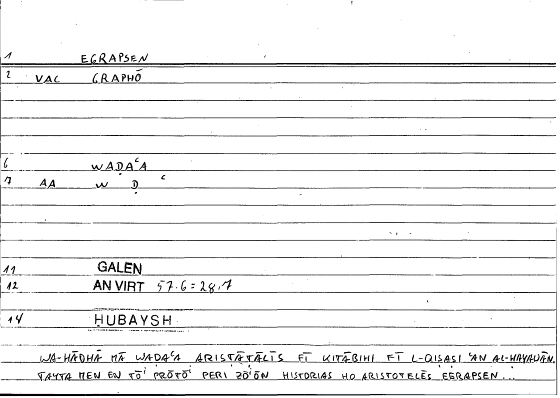 1 EGRAPSEN
2 VAC GRAPHŌ
6 WAḌAʿA
7 AA W Ḍ ʿ
11 GALEN
12 AN VIRT 57.6=28,7
14 ḤUBAYSH
WA-HĀDHĀ MĀ WADAʿA ARISṬĀṬĀLĪS FĪ KITĀBIHI FĪ L-QIṢAṢI ʿAN AL-ḤAYAWĀN.
TAYTA MEN EN TŌⁱ PRŌTŌⁱ PERI ZŌⁱŌN HISTORIAS HO ARISTOTELĒS EGRAPSEN...